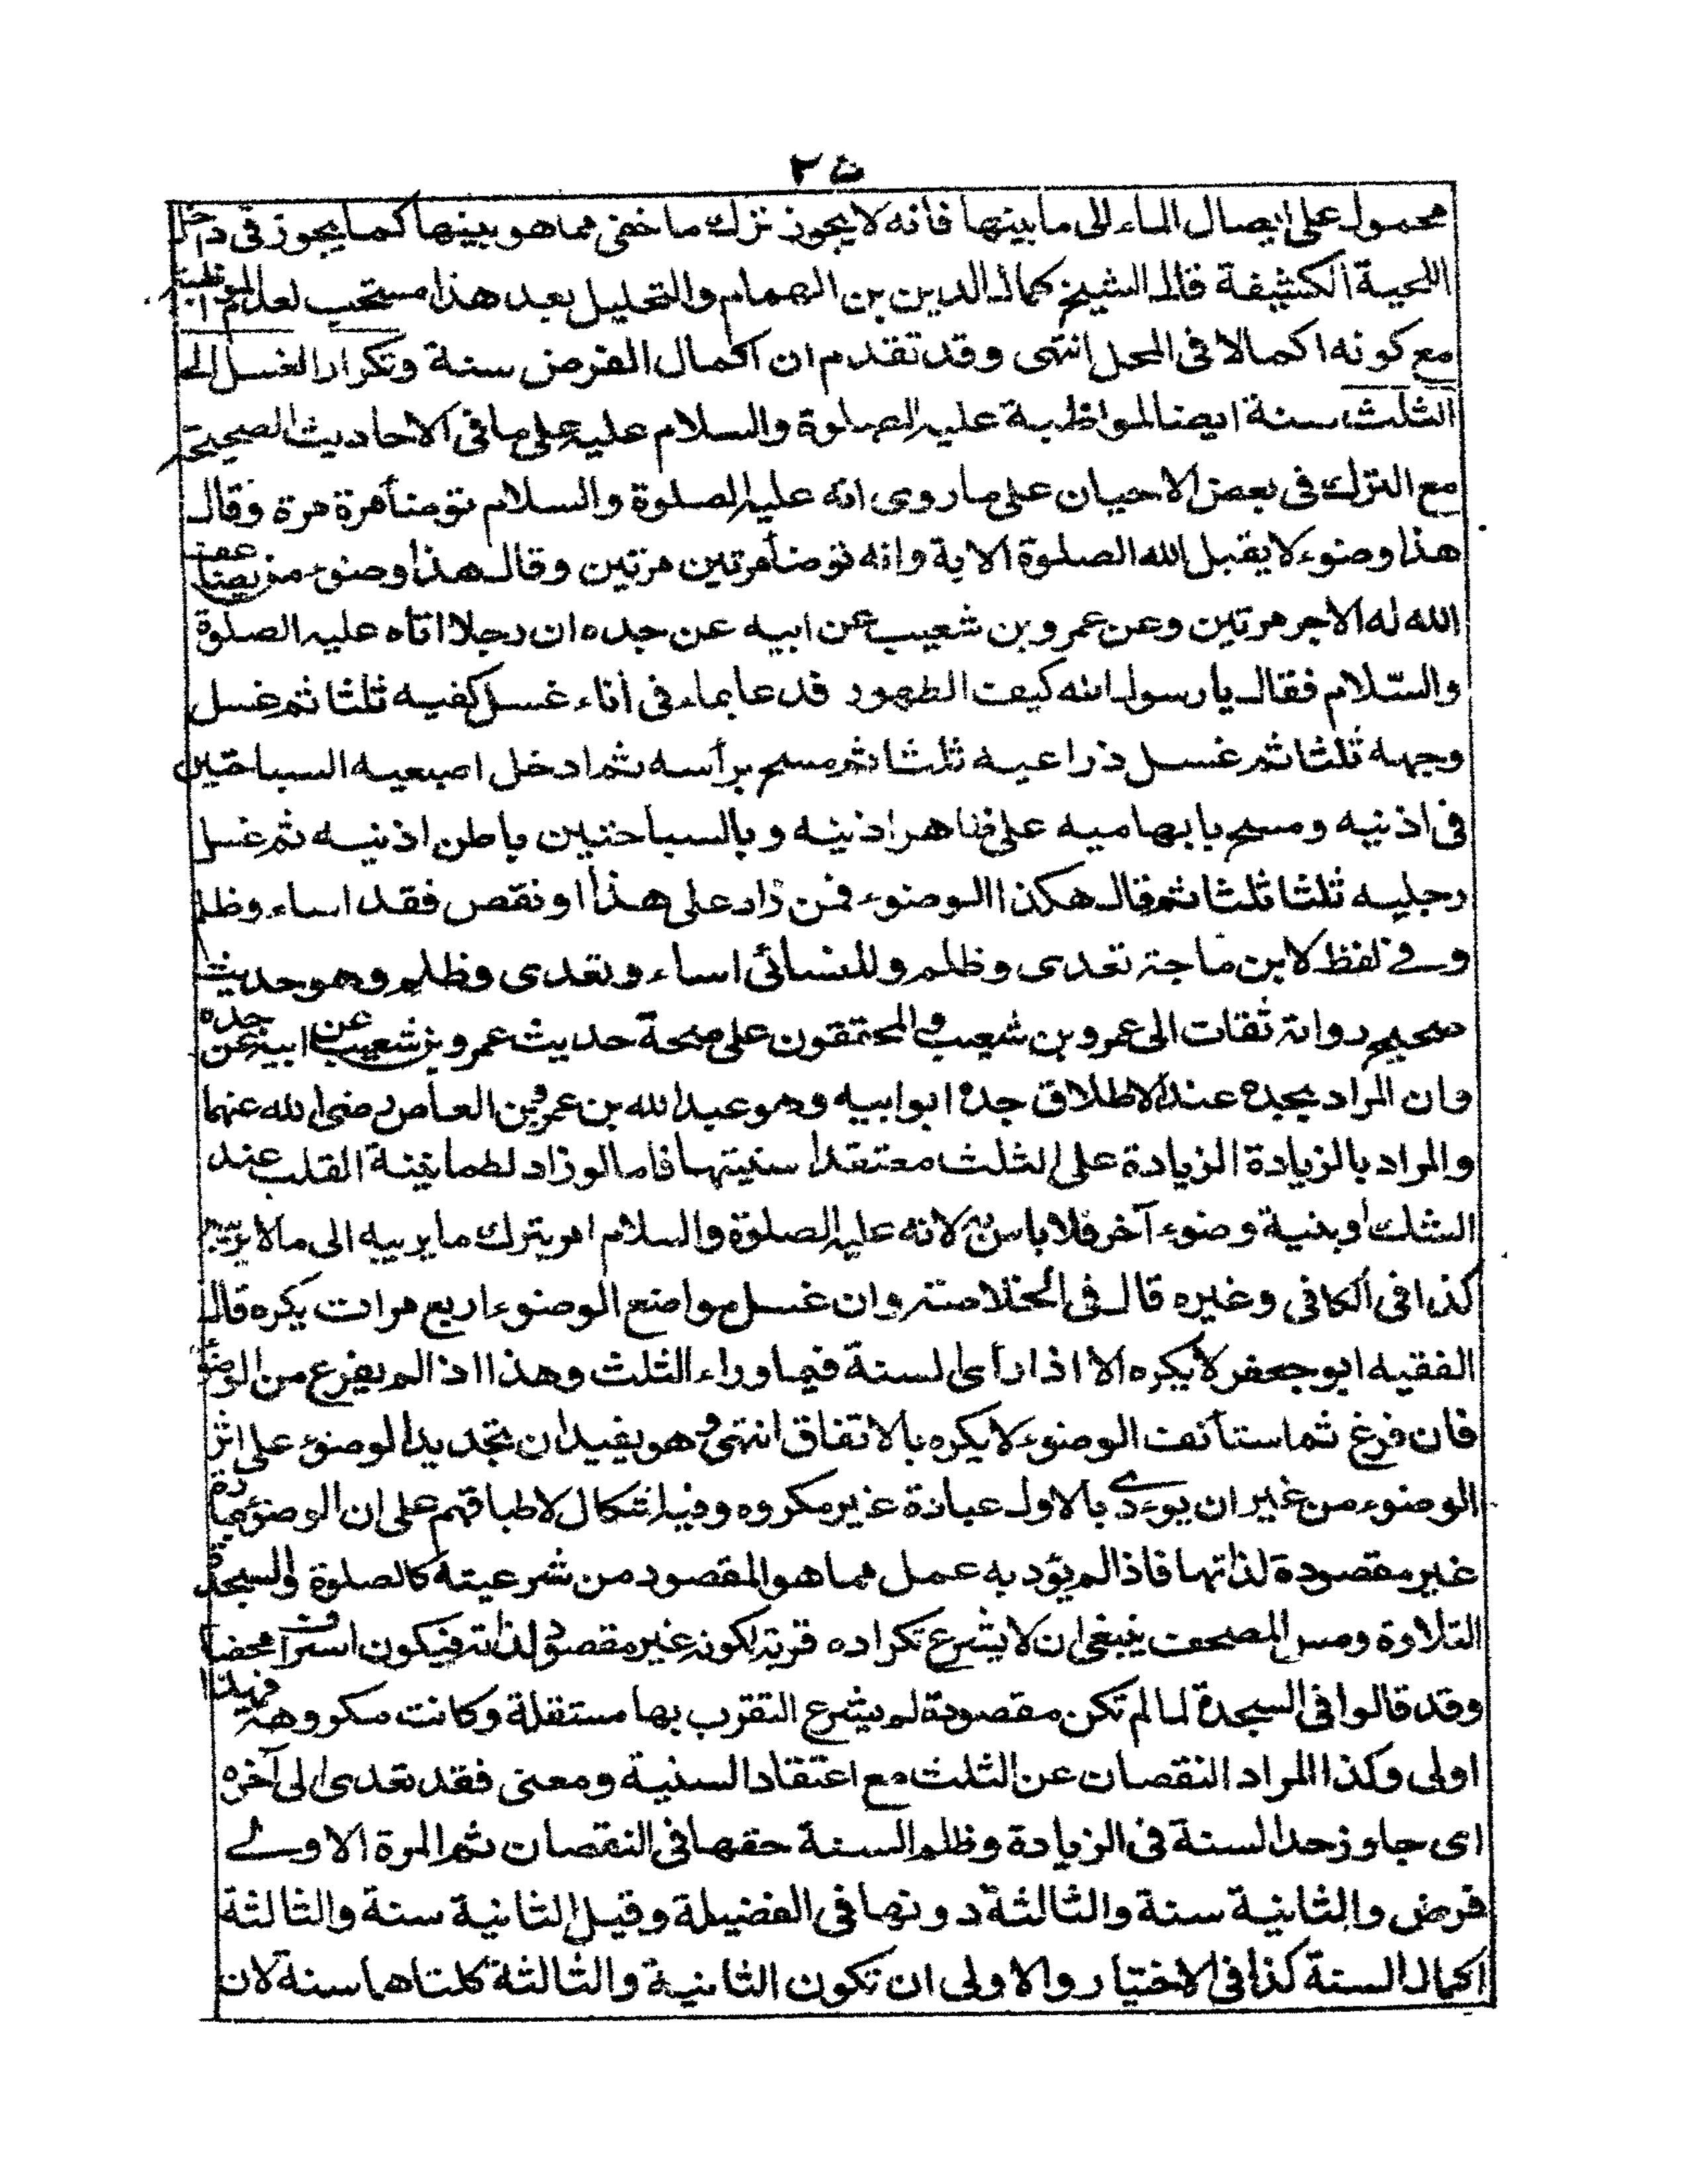 ٢٥
محمول على ايصال الماء الى ما بينها فانه لا يجوز ترك ما خفى مما هو بينها كما يجوز فى داخل
اللحية الكثيفة قال الشيخ كمال الدين بن الهمام والتخليل بعد هذا مستحب لعدم المواظبة
مع كونه اكمالا فى المحل انتهى وقد تقدم ان اكمال الفرض سنة وتكرار الغسل الى
الثلث سنة ايضا لمواظبة عليه الصلوة والسلام عليه على ما فى الاحاديث الصحيحة
مع الترك فى بعض الاحيان على ما روى انه عليه الصلوة والسلام توضأ مرة مرة وقال
هذا وضوء لا يقبل الله الصلوة الا به وانه توضأ مرتين مرتين وقال هذا وضوء من يضاعف
الله له الاجر مرتين وعن عمرو بن شعيب عن ابيه عن جده ان رجلا اتاه عليه الصلوة
والسّلام فقال يا رسول الله كيف الطهور فدعا بماء فى أناء غسل كفيه ثلثا ثم غسل
وجهه ثلثا ثم غسل ذراعيه ثلثا ثم مسح برأسه ثم ادخل اصبعيه السباحتين
فى اذنيه ومسح بابهاميه على ظاهر اذنيه وبالسباحتين باطن اذنيه ثم غسل
رجليه ثلثا ثلثا ثم قال هكذا الوضوء فمن زاد على هذا او نقص فقد اساء وظلم
وفى لفظ لابن ماجة تعدى وظلم وللنسائى اساء وتعدى وظلم وهو حديث
صحيح رواته ثقات الى عمرو بن شعيب والمحققون على صحة حديث عمرو بن شعيب عن ابيه عن جده
وان المراد بجده عند الاطلاق جده ابو ابيه وهو عبد الله بن عمرو بن العاص رضى الله عنهما
والمراد بالزيادة الزيادة على الثلث معتقدا سنيتها فاما لو زاد لطمانينة القلب عند
الشك او بنية وضوء آخر فلا باس به لانه عليه الصلوة والسلام امر بترك ما يريبه الى ما لا يريبه
كذا فى الكافى وغيره قال فى الخلاصة وان غسل مواضع الوضوء اربع مرات يكره قال
الفقيه ابو جعفر لا يكره الا اذا رأى السنة فيما وراء الثلث وهذا اذا لم يفرغ من الوضوء
فان فرغ ثم استأنف الوضوء لا يكره بالاتفاق انتهى وهو يفيد ان تجديد الوضوء على اثر
الوضوء من غير ان يوءدى بالاول عبادة غير مكروه وفيه اشكال لاطباقهم على ان الوضوء عبادة
غير مقصودة لذاتها فاذا لم يؤد به عمل مما هو المقصود من شرعيته كالصلوة والسجدة
التلاوة ومس المصحف ينبغى ان لا يشرع تكراره قربة لكونه غير مقصود لذاته فيكون اسرافا محضا
وقد قالوا فى السجدة لما لم تكن مقصودة لم يشرع التقرب بها مستقلة وكانت مكروهة فهذا
اولى وكذا المراد النقصان عن الثلث مع اعتقاد السنية ومعنى فقد تعدى الى آخره
اى جاوز حد السنة فى الزيادة وظلم السنة حقها فى النقصان ثم المرة الاولى
فرض والثانية سنة والثالثة دونها فى الفضيلة وقيل الثانية سنة والثالثة
اكمال السنة كذا فى الاختيار والاولى ان تكون الثانية والثالثة كلتاهما سنة لان